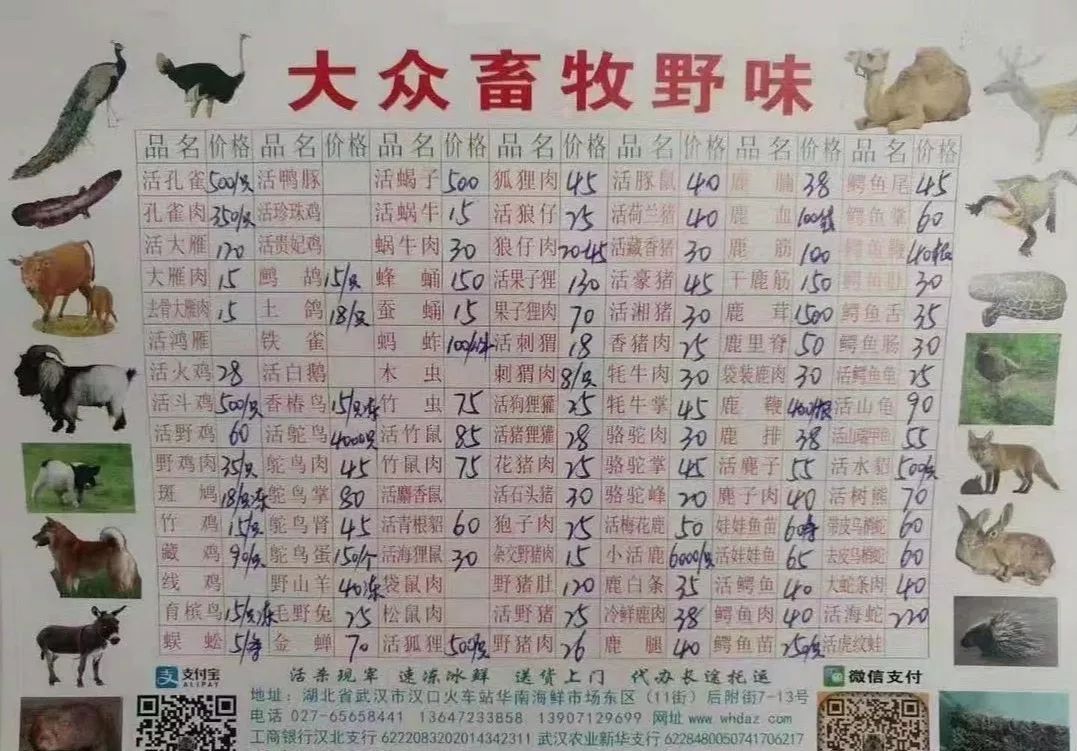 大众畜牧野味
品名 价格 品名 价格 品名 价格 品名 价格 品名 价格 品名 价格 品名 价格
活孔雀 500/只 活鸭豚 活蝎子 500 狐狸肉 45 活豚鼠 40 鹿脯 38 鳄鱼尾 45
孔雀肉 350/只 活珍珠鸡 活蜗牛 15 活狼仔 25 活荷兰猪 40 鹿血 鳄鱼掌 60
活大雁 120 活贵妃鸡 蜗牛肉 30 狼仔肉 20-45 活藏香猪 30 鹿筋 100 鳄鱼鞭
大雁肉 15 鹧鸪 15/只 蜂蛹 150 活果子狸 130 活豪猪 45 干鹿筋 150 鳄鱼肚 30
去骨大雁肉 15 土鸽 18/只 蚕蛹 15 果子狸肉 70 活湘猪 30 鹿茸 1500 鳄鱼舌 35
活鸿雁 铁雀 蚂蚱 活刺猬 18 香猪肉 25 鹿里脊 50 鳄鱼肠 30
活火鸡 28 活白鹅 木虫 刺猬肉 8/只 牦牛肉 30 袋装鹿肉 30 活鳄鱼龟 25
活斗鸡 500/只 香椿鸟 15/只冻 竹虫 75 活狗狸獾 25 牦牛掌 45 鹿鞭 活山龟 90
活野鸡 60 活鸵鸟 4000只 活竹鼠 85 活猪狸獾 28 骆驼肉 30 鹿排 38 55
野鸡肉 35/只 鸵鸟肉 45 竹鼠肉 75 花猪肉 25 骆驼掌 45 活麂子 55 活水貂 500/只
斑鸠 18/只冻 鸵鸟掌 80 活麝香鼠 活石头猪 30 骆驼峰 20 麂子肉 40 活树熊 70
竹鸡 15/只 鸵鸟肾 45 活青根貂 60 狍子肉 25 活梅花鹿 50 娃娃鱼苗 带皮乌梢蛇 60
藏鸡 90/只 鸵鸟蛋 150/个 活海狸鼠 30 杂交野猪肉 15 小活鹿 6000/只 活娃娃鱼 65 去皮乌梢蛇 60
线鸡 野山羊 40冻 袋鼠肉 野猪肚 120 鹿白条 35 活鳄鱼 40 大蛇条肉 40
育槟鸟 15/只冻 毛野兔 25 松鼠肉 活野猪 25 冷鲜鹿肉 38 鳄鱼肉 40 活海蛇 220
蜈蚣 金蝉 70 活狐狸 500/只 野猪肉 26 鹿腿 40 鳄鱼苗 250/只 活虎纹蛙
支付宝
ALIPAY
活杀现宰 速冻冰鲜 送货上门 代办长途托运
微信支付
地址：湖北省武汉市汉口火车站华南海鲜市场东区（11街）后附街7-13号
电话 027-65658441 13647233858 13907129699 网址 www.whdaz.com
工商银行汉北支行 6222083202014342311 武汉农业新华支行 6228480050741706217